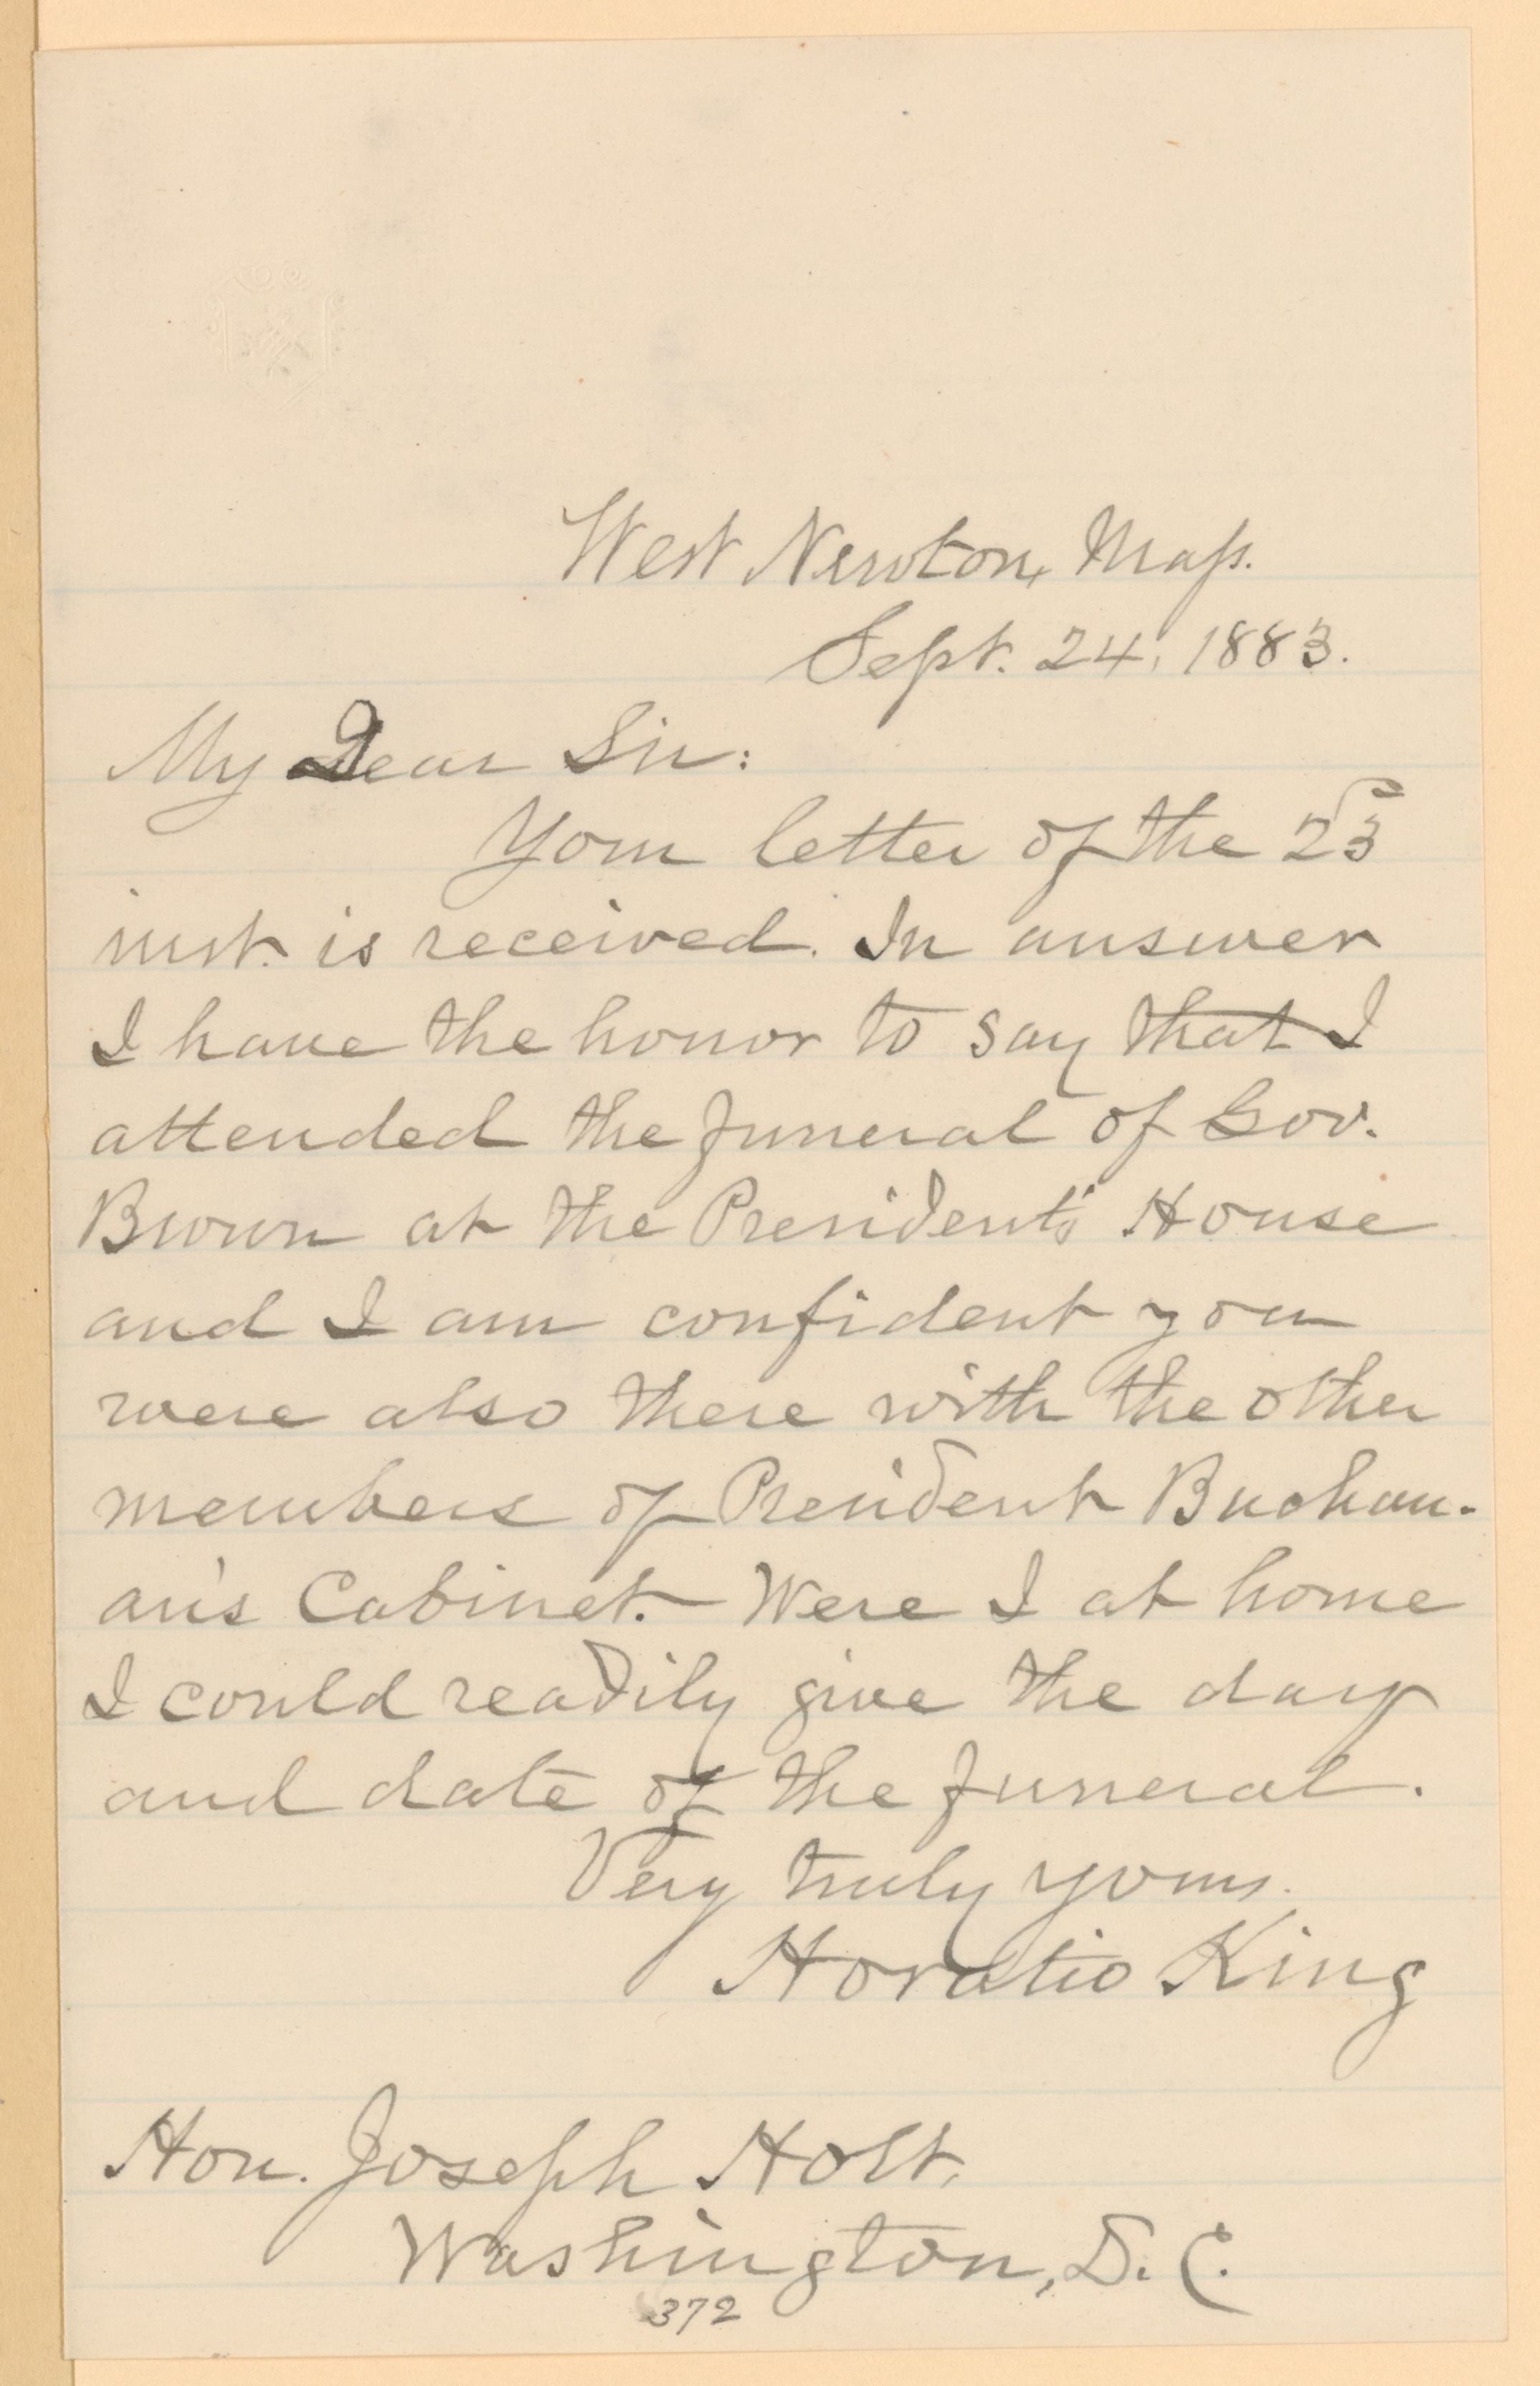 West Newton, Mass.
Sept. 24, 1883.
My Dear Sir:
Your letter of the 23d
inst. is received. In answer
I have the honor to say that I
attended the funeral of Gov.
Brown at the President's House
and I am confident you
were also there with the other
members of President Buchan-
an's Cabinet. Were I at home
I could readily give the day
and date of the funeral.
Very truly yours,
Horatio King
Hon. Joseph Holt,
Washington, D. C.
372